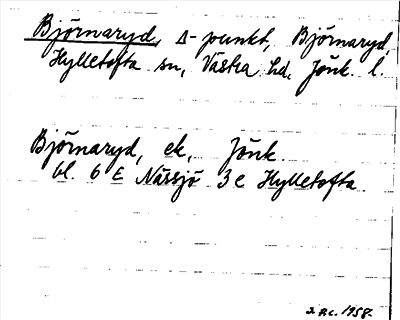 Björnaryd, Δ-punkt, Björnaryd,
Hylletofta sn, Västra hd, Jönk. l.
Björnaryd, ek, Jönk.
bl. 6 E Nässjö 3 e Hylletofta
1958.